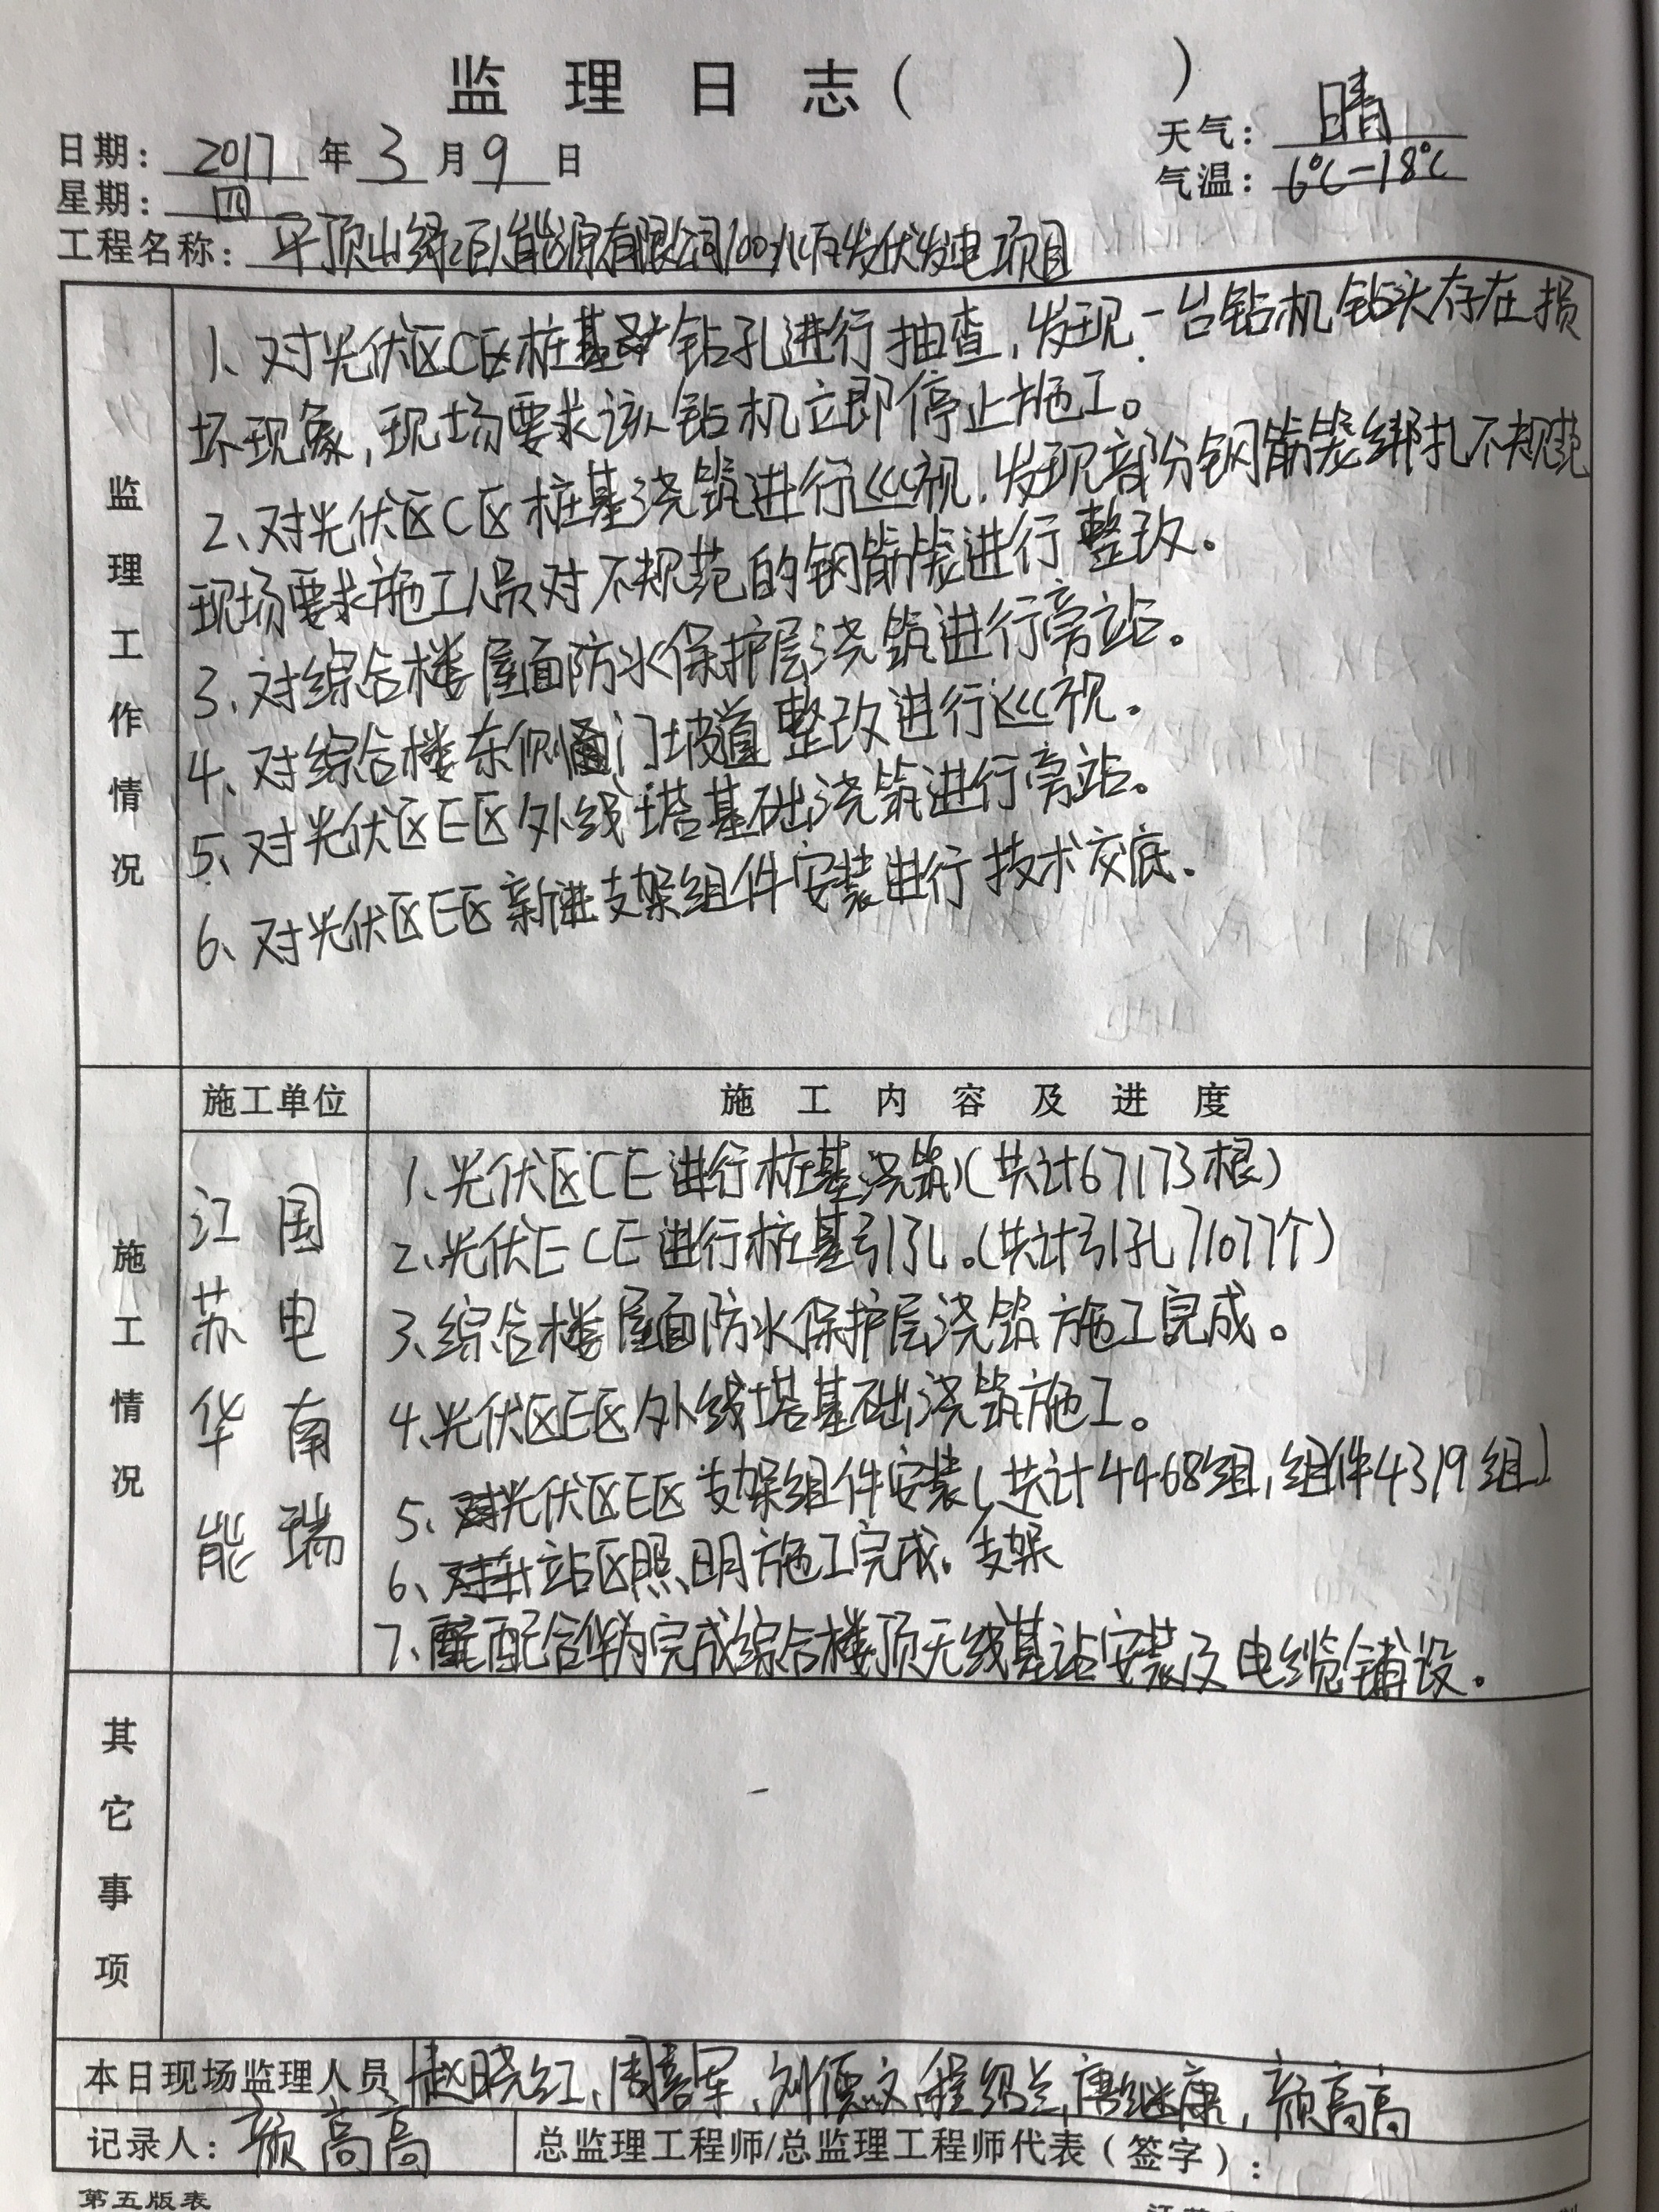 监 理 日 志 (　　　)
日期: 2017 年 3 月 9 日
天气: 晴
星期: 四
气温: 6℃-18℃
工程名称: 平顶山绿巨人能源有限公司100兆瓦发伏发电项目
监理工作情况
1、对光伏区CE桩基钻孔进行抽查,发现一台钻机钻头存在损
坏现象,现场要求该钻机立即停止施工。
2、对光伏区C区桩基浇筑进行巡视,发现部分钢筋笼绑扎不规范
现场要求施工人员对不规范的钢筋笼进行整改。
3、对综合楼屋面防水保护层浇筑进行旁站。
4、对综合楼东侧门坡道整改进行巡视。
5、对光伏区E区外线塔基础浇筑进行旁站。
6、对光伏区E区新进支架组件安装进行技术交底.
施工单位
施 工 内 容 及 进 度
施工情况
江苏华能
国电南瑞
1、光伏区CE进行桩基浇筑(共计67173根)
2、光伏E CE进行桩基引孔。(共计引孔71077个)
3、综合楼屋面防水保护层浇筑施工完成。
4、光伏区E区外线塔基础浇筑施工。
5、光伏区E区支架组件安装(共计4468组,组件4319组)
6、站区照明施工完成。支架
7、配合华为完成综合楼顶无线基站安装及电缆铺设。
其它事项
本日现场监理人员 赵晓红、周喜军、刘德文,程绍兰,唐继康,颜高高
记录人: 颜高高
总监理工程师/总监理工程师代表(签字):
第五版表